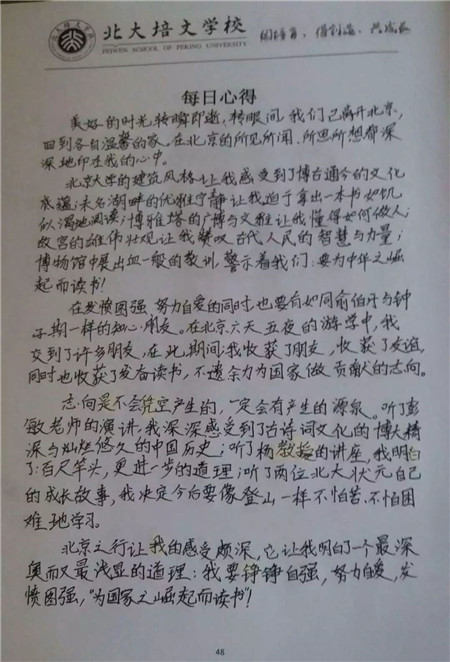 北大培文学校
PEIWEN SCHOOL OF PEKING UNIVERSITY
每日心得
美好的时光转瞬即逝，转眼间，我们已离开北京，
回到各自温馨的家，在北京的所见所闻、所思所想都深
深地印在我的心中。
北京大学的建筑风格让我感受到了博古通今的文化
底蕴；未名湖畔的优雅宁静让我迫于拿出一本书如饥
似渴地阅读；博雅塔的广博与文雅让我懂得如何做人；
故宫的雄伟壮观让我赞叹古代人民的智慧与力量；
博物馆中展出血一般的教训，警示着我们：要为中华之崛
起而读书！
在发愤图强，努力自爱的同时，也要有如同俞伯牙与钟
子期一样的知心朋友。在北京六天五夜的游学中，我
交到了许多朋友，在此期间，我收获了朋友，收获了友谊，
同时也收获了发奋读书，不遗余力为国家做贡献的志向。
志向是不会凭空产生的，一定会有产生的源泉。听了彭
敏老师的演讲，我深深感受到了古诗词文化的博大精
深与灿烂悠久的中国历史；听了杨教授的讲座，我明白
了：百尺竿头，更进一步的道理；听了两位北大状元自己
的成长故事，我决定今后要像登山一样不怕苦、不怕困
难地学习。
北京之行让我的感受颇深，它让我明白了一个最深
奥而又最浅显的道理：我要铮铮自强，努力自爱，发
愤图强，“为国家之崛起而读书”！
48